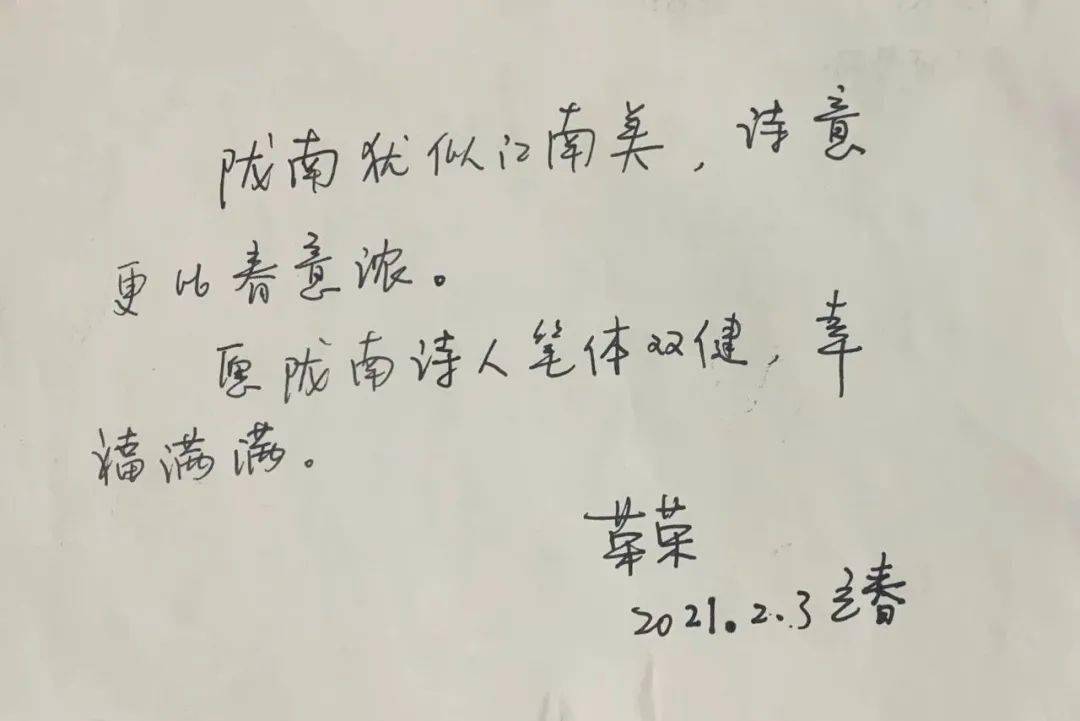 陇南犹似江南美，诗意
更比春意浓。
愿陇南诗人笔体双健，幸
福满满。
荣荣
2021.2.3立春